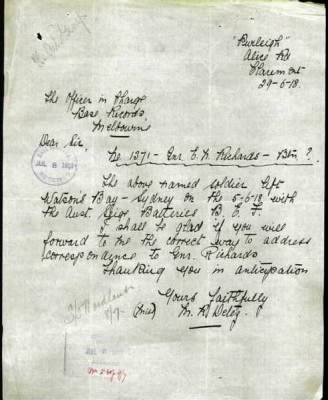 "Burleigh"
Alice Rd
Claremont
29-6-18.
The Officer in Charge
Base Records,
Melbourne
Dear Sir,
Re 1371 - Gnr. E. N. Richards - Btn ?
The above named soldier left
Watson's Bay - Sydney on the 5-6-18 with
the Aust. Siege Batteries B. E. F.
I shall be glad if you will
forward to me the correct way to address
correspondence to Gnr. Richards
Thanking you in anticipation
Yours faithfully
(Miss) M. R.
JUL 8 1918